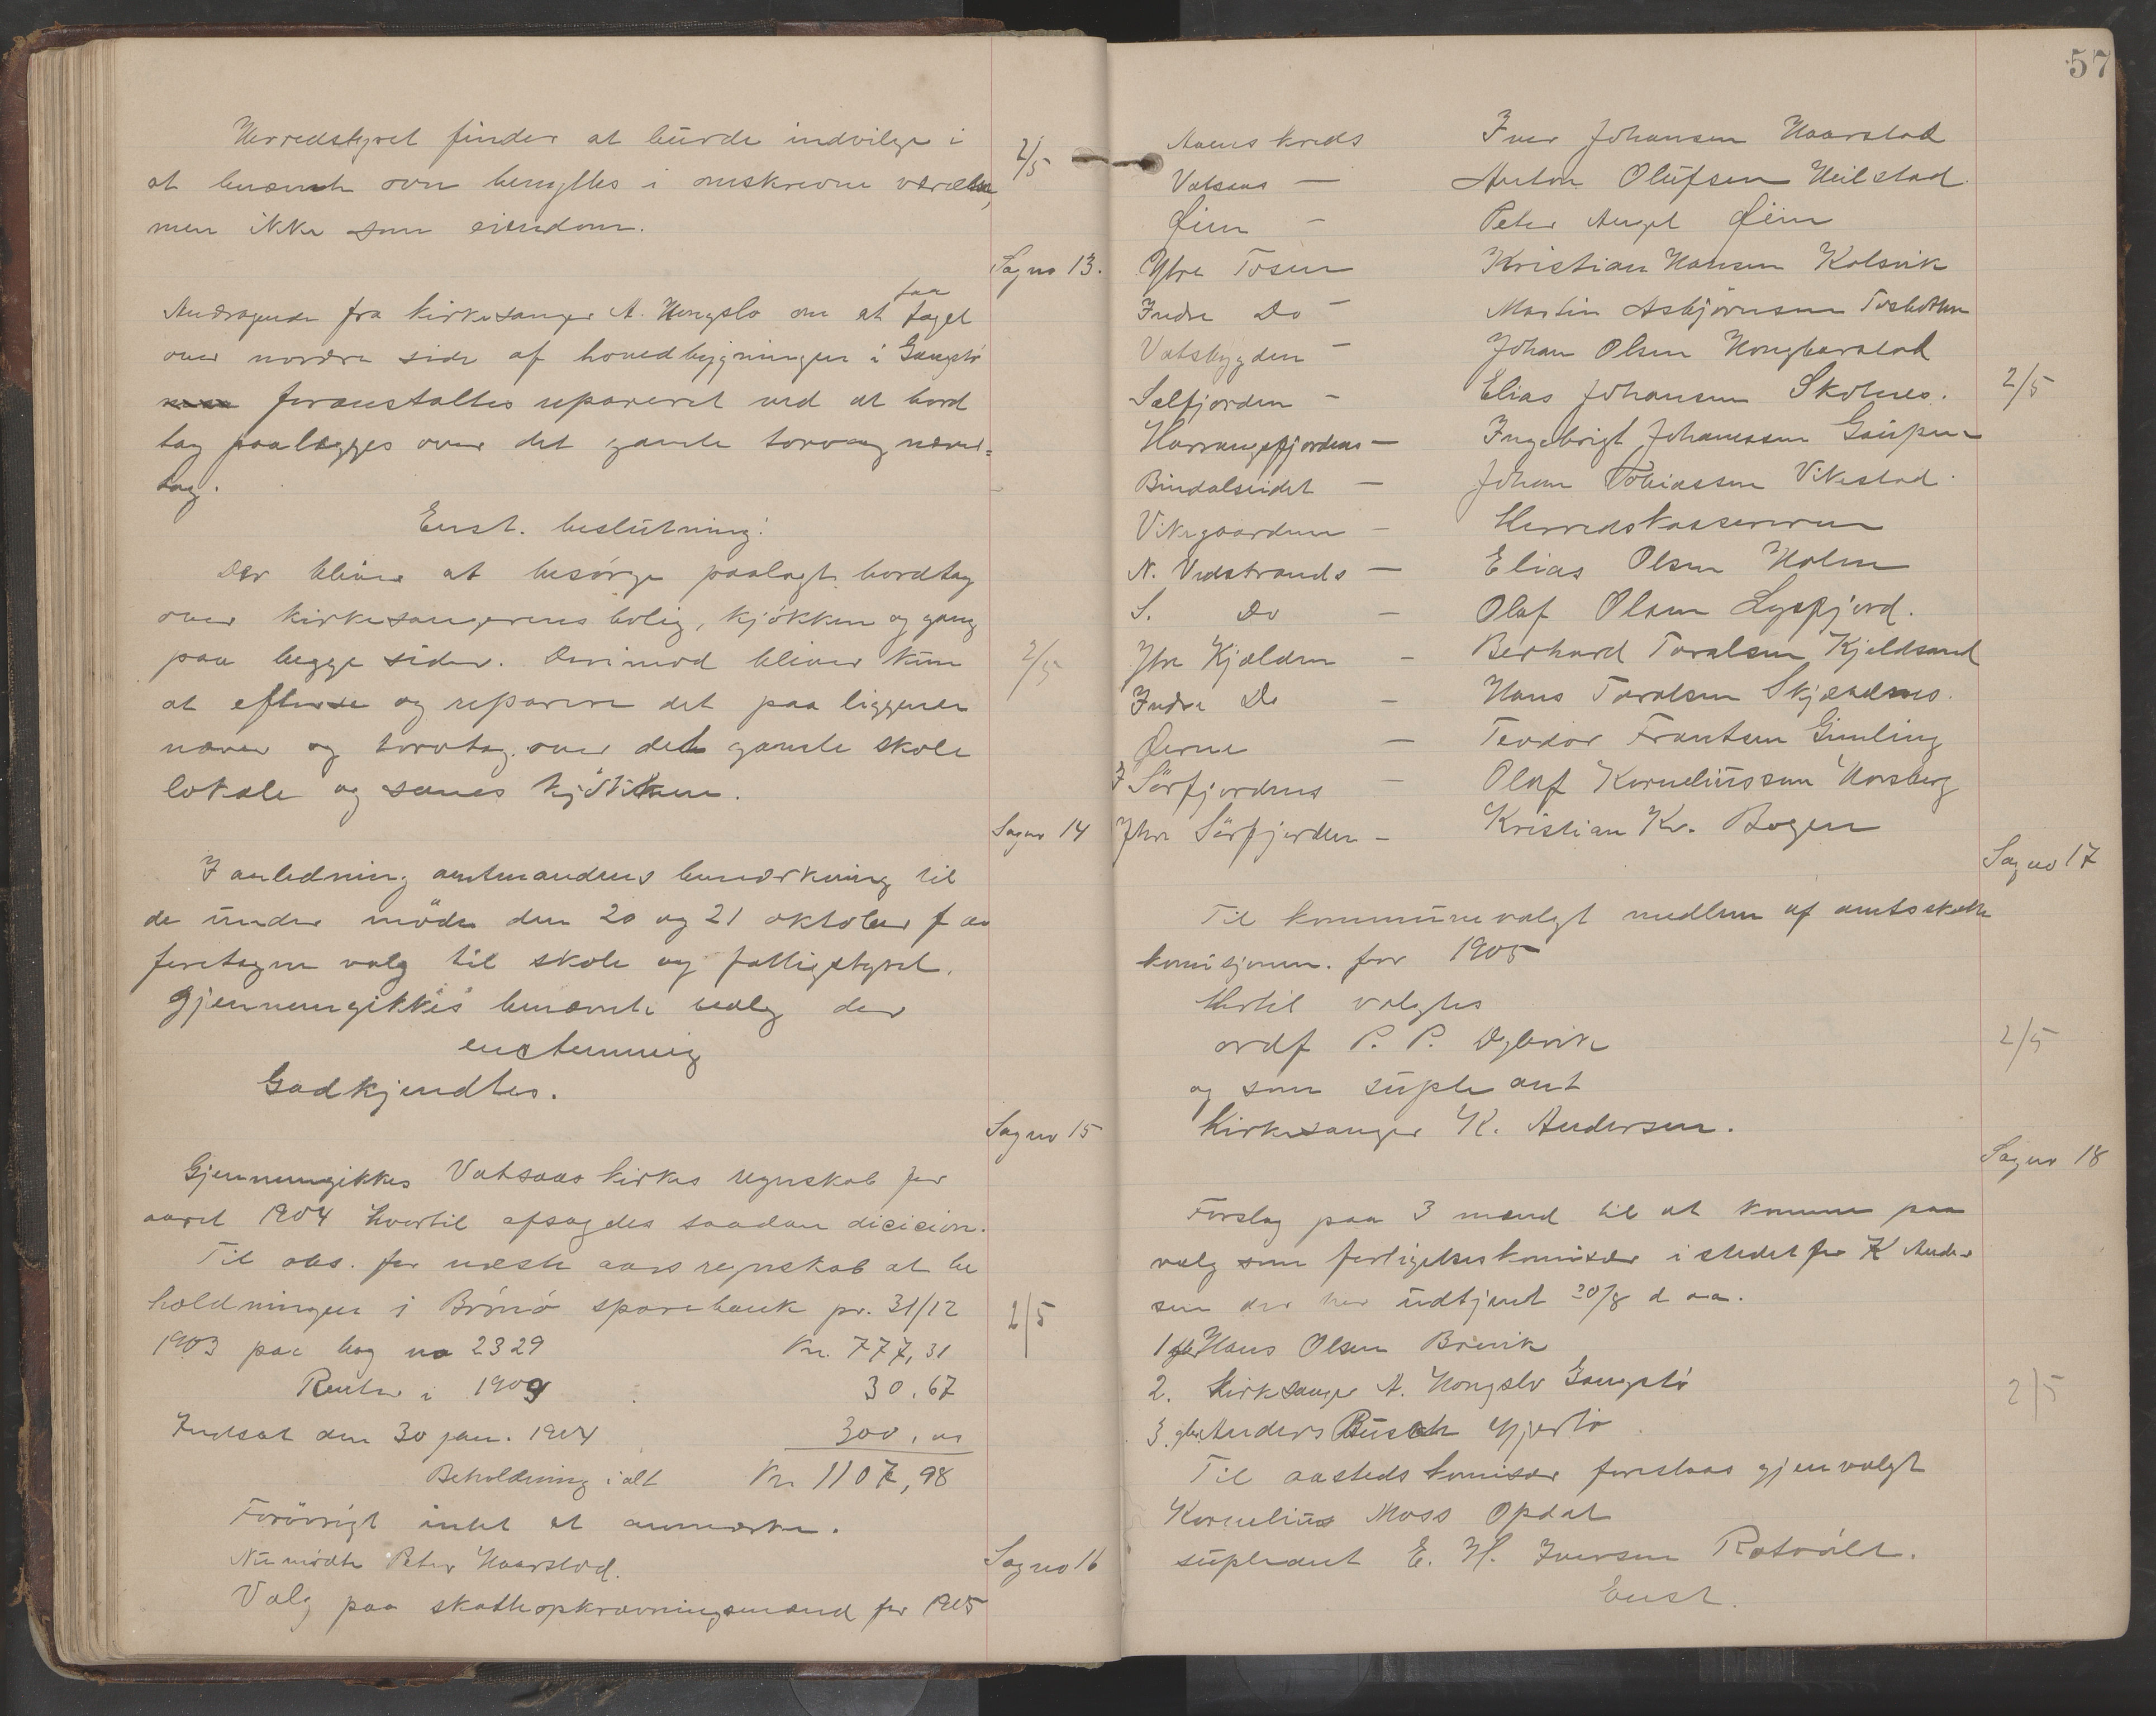 Herredstyret finder at burde indvilge i
at benævnte ovn benyttes i omskrevne værelse,
men ikke som eiendom.
2/5
Sag no 13.
Andragende fra kirkesanger A. Hongslo om at faa taget
over nordre side af hovedbygningen i Gangstø
foranstaltes reparert ved at bord
tag paalægges over det gamle torv og næver=
tag.
Enst. beslutning:
Der bliver at besørge paalagt bordtag
over kirkesangerens bolig, kjøkken og gang
paa begge sider. Derimod bliver kun
at efterse og reparere det paa liggende
næver og torvtag over det gamle skole
lokale og sammes kjøkken.
2/5
Sag no 14
I anledning amtmandens bemærkning til
de under møde den 20 og 21 oktober f aa
foretagne valg til skole og fattigstyret.
Gjennemgikkes benævnte valg der
enstemmig
Godkjendtes.
Sag no 15
Gjennemgikkes Vatsaas kirkes regnskab for
aaret 1904 hvortil afsagdes saadan dicicion.
Til obs. for næste aars regnskab at be
holdningen i Brønø sparebank pr. 31/12
1903 paa bog no 2329 Kr. 777,31
Renter i 1904 30.67
Indsat den 30 jan. 1904 300,00
Beholdning ialt Kr 1107,98
2/5
Forøvrigt intet at anmærke.
Nu mødte Peter Haarstad.
Sag no 16
Valg paa skatteopkrævningsmænd for 1905
57
Aaens kreds Iver Johansen Haarstad
Vatsaas — Anton Olufsen Heilstad
Øien — Peter Angel Øien
Ytre Tosen Kristian Hansen Kolsvik
Indre Do — Martin Asbjørnsen Tosbotten
Vatsbygden — Johan Olsen Hongbarstad
Salfjorden — Elias Johansen Skotnes.
2/5
Harrangsfjordens — Ingebrigt Johanssen Gaupen
Bindalseidet — Johan Tobiassen Vikestad
Vikegaarden — Herredskassereren
N. Vedstrands — Elias Olsen Holm
S. Do — Olaf Olsen Lysfjord.
Ytre Kjælden — Berhard Toralsen Kjeldsand
Indre Do — Hans Toralsen Skjældnes.
Øerne — Teodor Frantsen Gimling
I Sørfjordens — Olaf Korneliussen Horsberg
Ytre Sørfjorden — Kristian Kr. Bogen
Sag no 17
Til kommunevalgt medlem af amtsskatte
komisjonen. for 1905
Hertil valgtes
ordf P. P. Dybvik
og som supleant
Kirkesanger K. Andersen.
2/5
Sag no 18
Forslag paa 3 mænd til at komme paa
valg som forligelseskomisær i stedet for K Ander
sen der har udtjent 20/8 d aa.
1 gbr Hans Olsen Brevik
2. Kirkesanger A. Hongslo Gangstø
3. gbr. Anders Busch
2/5
Til aasteds komisær foreslaas gjenvalgt
Kornelius Moss Opdal
supleant E. H. Iversen
Enst.